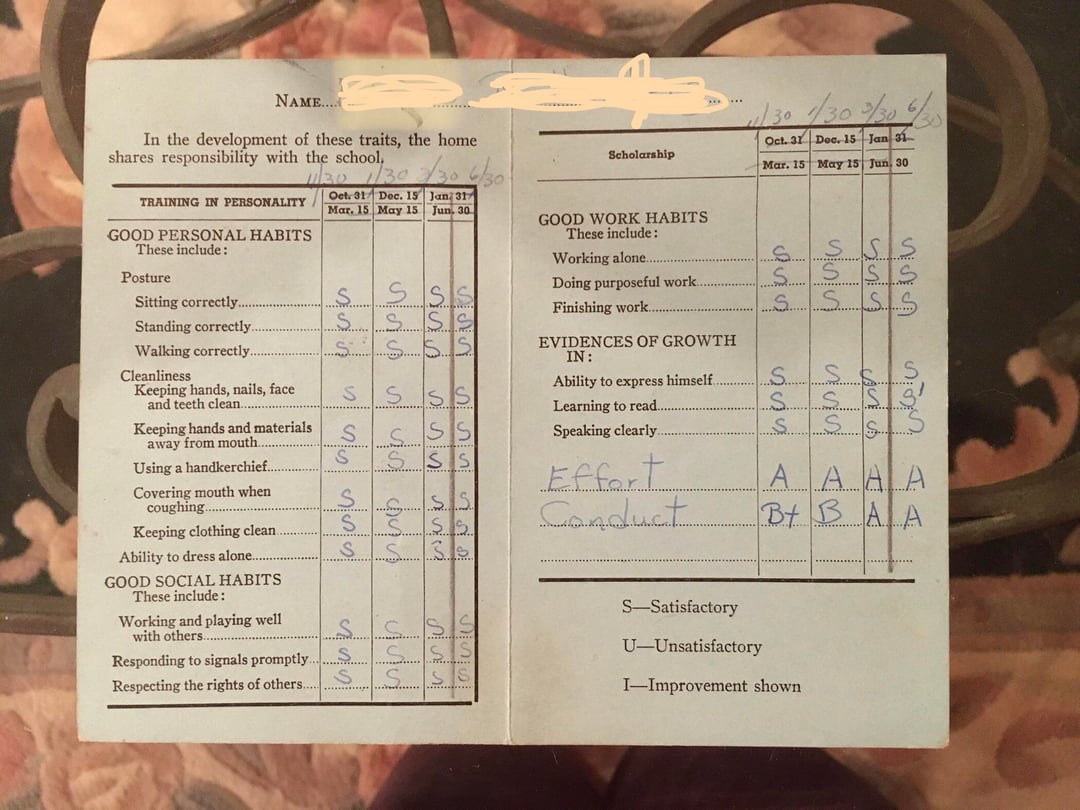 NAME....
In the development of these traits, the home
shares responsibility with the school.
11/30 1/30 3/30 6/30
TRAINING IN PERSONALITY Oct. 31 Dec. 15 Jan. 31
Mar. 15 May 15 Jun. 30
GOOD PERSONAL HABITS
These include:
Posture
Sitting correctly S S S S
Standing correctly S S S S
Walking correctly S S S S
Cleanliness
Keeping hands, nails, face
and teeth clean S S S S
Keeping hands and materials
away from mouth S S S S
Using a handkerchief S S S S
Covering mouth when
coughing S S S S
Keeping clothing clean S S S S
Ability to dress alone S S S S
GOOD SOCIAL HABITS
These include:
Working and playing well
with others S S S S
Responding to signals promptly S S S S
Respecting the rights of others S S S S
11/30 1/30 3/30 6/30
Scholarship Oct. 31 Dec. 15 Jan 31
Mar. 15 May 15 Jun. 30
GOOD WORK HABITS
These include:
Working alone S S S S
Doing purposeful work S S S S
Finishing work S S S S
EVIDENCES OF GROWTH
IN:
Ability to express himself S S S S
Learning to read S S S S!
Speaking clearly S S S S
Effort A A A A
Conduct B+ B A A
S—Satisfactory
U—Unsatisfactory
I—Improvement shown